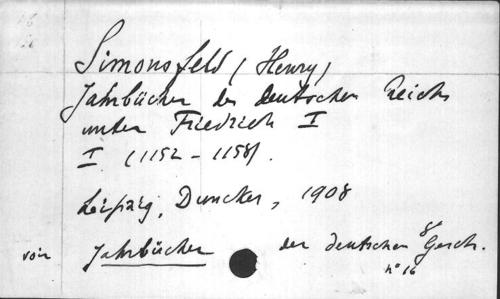 Simonsfeld (Henry)
Jahrbücher des deutschen Reichs
unter Friedrich I
I. (1152 - 1158).
Leipzig, Duncker, 1908
voir Jahrbücher der deutschen Gesch.
n° 16